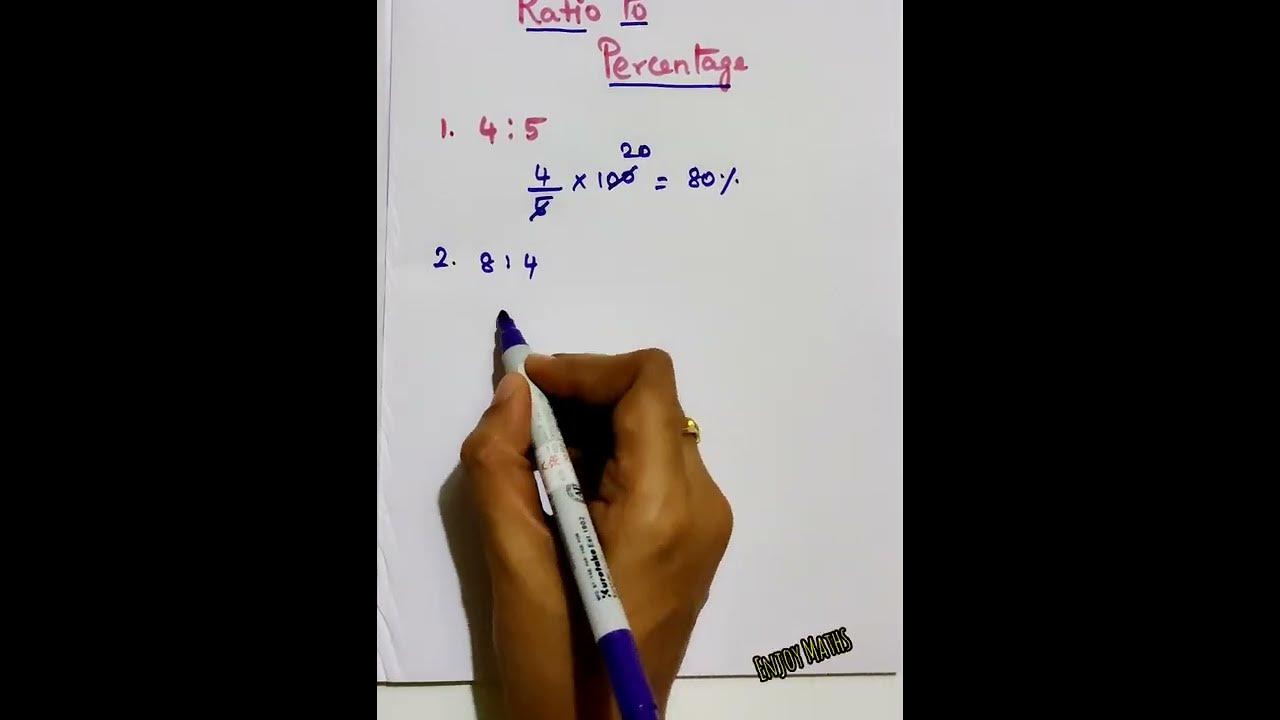 Ratio To
Percentage
1. 4:5
4/5 × 100 = 80%
20
2. 8:4
ENJOY MATHS